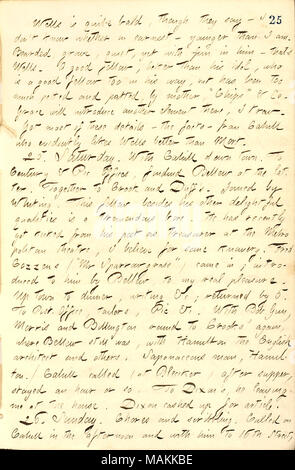 25
Wells is quite bald, though they say - I
don't know whether in earnest - younger than I am.
Bearded, grave, quiet, yet with fun in him - real
Wells. A good fellow, better than his idol, who
is a good fellow too in his way, but has been too
much petted and patted by another "Chips" & Co.
Grace will introduce another
got most of these details - the facts - from Cahill
who evidently likes Wells better than Mort.
25. Saturday. With Cahill down town. To
Century & Pic Offices, finding Bellew at the lat-
ter. Together to Crook and Duff's. Joined by
Whiting. This fellow besides his other delightful
qualities is a tremendous bore. He has recently
got ousted from his post as treasurer at the Metro-
politan theatre, I believe for some knavery. Fred
Cozzens ("Mr Sparrowgrass") came in & intro-
duced to him by Bellew, to my real pleasure.
Up town to dinner, writing &c, returned by 5.
To Post Office, tailors, Pic &c. With Bob Gun,
Morris and Billington round to Crook's again,
where Bellew still was, with Hamilton the English
architect and others. (Saponaceous man, Hamil-
ton.) Cahill called, at Bleecker, after supper,
stayed an hour or so. To Dixon's, he
out at the house. Dixon cashed up for article.
26. Sunday. Chores and scribbling. Called on
Cahill in the afternoon and with him to 16th Street,
alamy
Image ID: MAKKBE
www.alamy.com